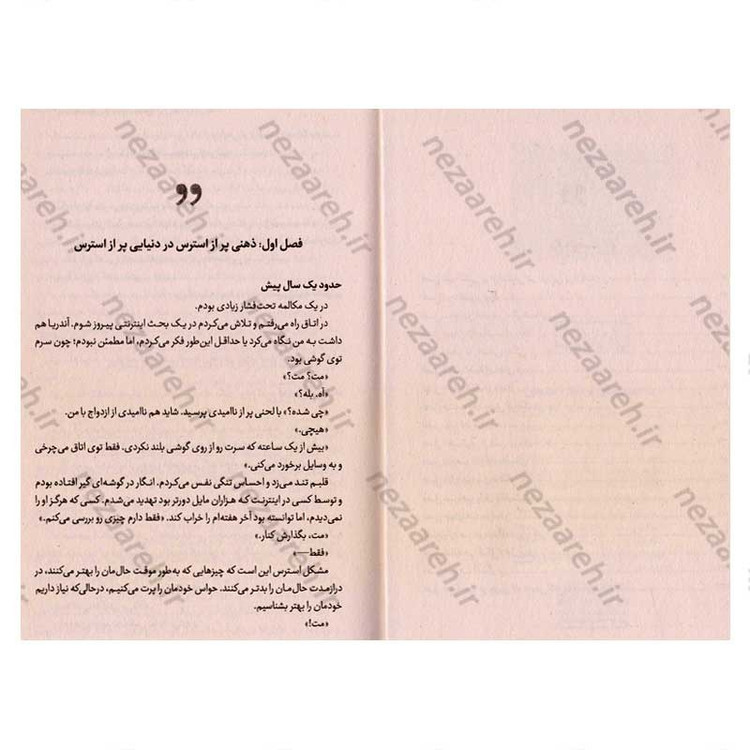 ”
فصل اول: ذهنی پر از استرس در دنیایی پر از استرس
حدود یک سال پیش
در یک مکالمه تحت‌فشار زیادی بودم.
در اتاق راه می‌رفتم و تلاش می‌کردم در یک بحث اینترنتی پیروز شوم. آندریا هم
داشت به من نگاه می‌کرد یا حداقل این‌طور فکر می‌کردم، اما مطمئن نبودم؛ چون سرم
توی گوشی بود.
«مت؟ مت؟»
«آه. بله؟»
«چی شده؟» با لحنی پر از ناامیدی پرسید. شاید هم ناامیدی از ازدواج با من.
«هیچی.»
«بیش از یک ساعته که سرت رو از روی گوشی بلند نکردی. فقط توی اتاق می‌چرخی
و به وسایل برخورد می‌کنی.»
قلبم تند می‌زد و احساس تنگی نفس می‌کردم. انگار در گوشه‌ای گیر افتاده بودم
و توسط کسی در اینترنت که هزاران مایل دورتر بود تهدید می‌شدم. کسی که هرگز او را
نمی‌دیدم، اما توانسته بود آخر هفته‌ام را خراب کند. «فقط دارم چیزی رو بررسی می‌کنم.»
«مت، بگذارش کنار.»
«فقط—»
مشکل استرس این است که چیزهایی که به‌طور موقت حال‌مان را بهتر می‌کنند، در
درازمدت حال‌مان را بدتر می‌کنند. حواس خودمان را پرت می‌کنیم، درحالی‌که نیاز داریم
خودمان را بهتر بشناسیم.
«مت!»
nezaareh.ir
nezaareh.ir
nezaareh.ir
nezaareh.ir
nezaareh.ir
nezaareh.ir
nezaareh.ir
nezaareh.ir
nezaareh.ir
nezaareh.ir